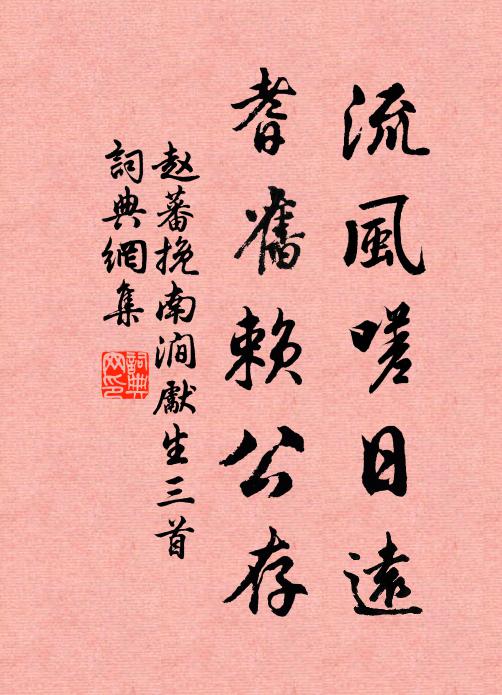 流風嗟日遠
耆舊賴公存
赵蕃挽南澗獻生三首
詞典網集
詞典網印